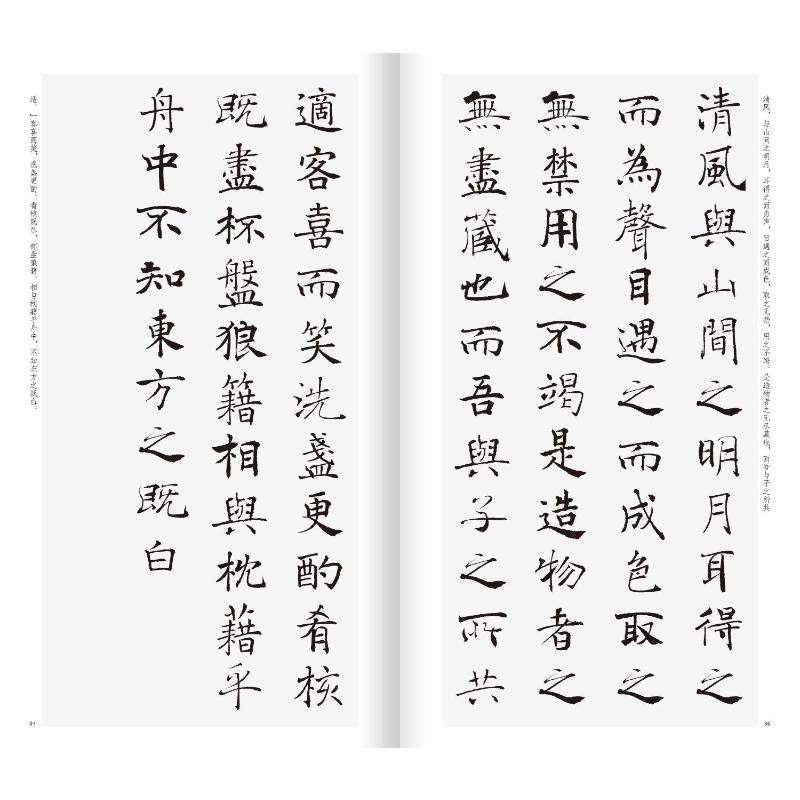 清风，与山间之明月，耳得之而为声，目遇之而成色，取之无禁，用之不竭。是造物者之无尽藏也，而吾与子之所共
清風與山間之明月耳得之
而為聲目遇之而成色取之
無禁用之不竭是造物者之
無盡藏也而吾與子之所共
適客喜而笑洗盞更酌肴核
既盡杯盤狼籍相與枕藉乎
舟中不知東方之既白
适。」客喜而笑，洗盏更酌。肴核既尽，杯盘狼籍。相与枕藉乎舟中，不知东方之既白。